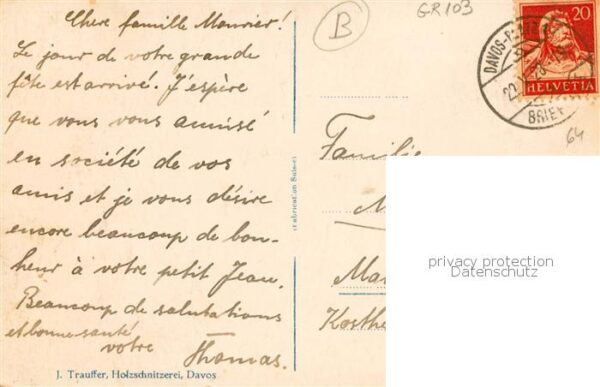 Chere famille Meurier!
Le jour de votre grande
fête est arrivé. J'espère
que vous vous amusé
en société de vos
amis et je vous désire
encore beaucoup de bon-
heur à votre petit Jean.
Beaucoup de salutations
et bonne santé
votre Thomas.
J. Trauffer, Holzschnitzerei, Davos
Fabrication Suisse
B
GR103
20
HELVETIA
DAVOS-PLATZ
BRIEF
64
Familie
M
Ma
Kosthe
privacy protection
Datenschutz